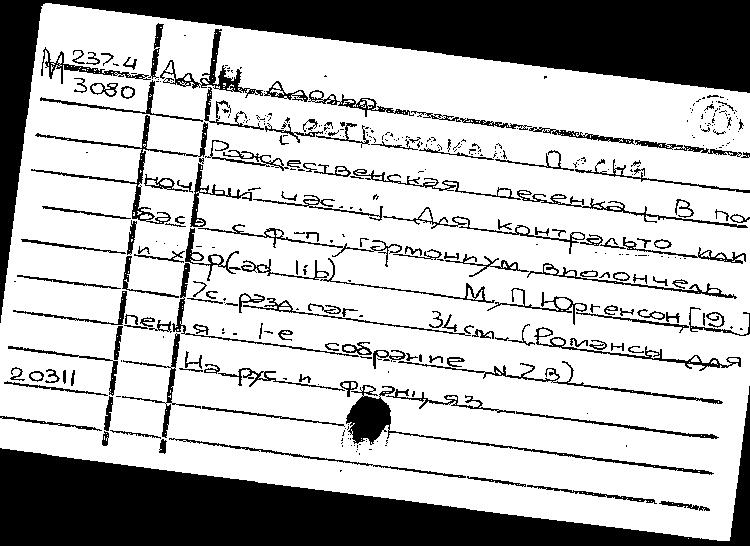 М 237-4
3080
Адан, Адольф
Рождественская песня
Рождественская песенка [„В по
ночный час...“]. Для контральто или
баса с ф.-п.; гармониум, виолончель
и хор (ad lib).
М., П. Юргенсон, [19..]
7с. разд. паг. 34см. (Романсы для
пения.. 1-е собрание, N 7 в).
На рус. и франц. яз.
20311